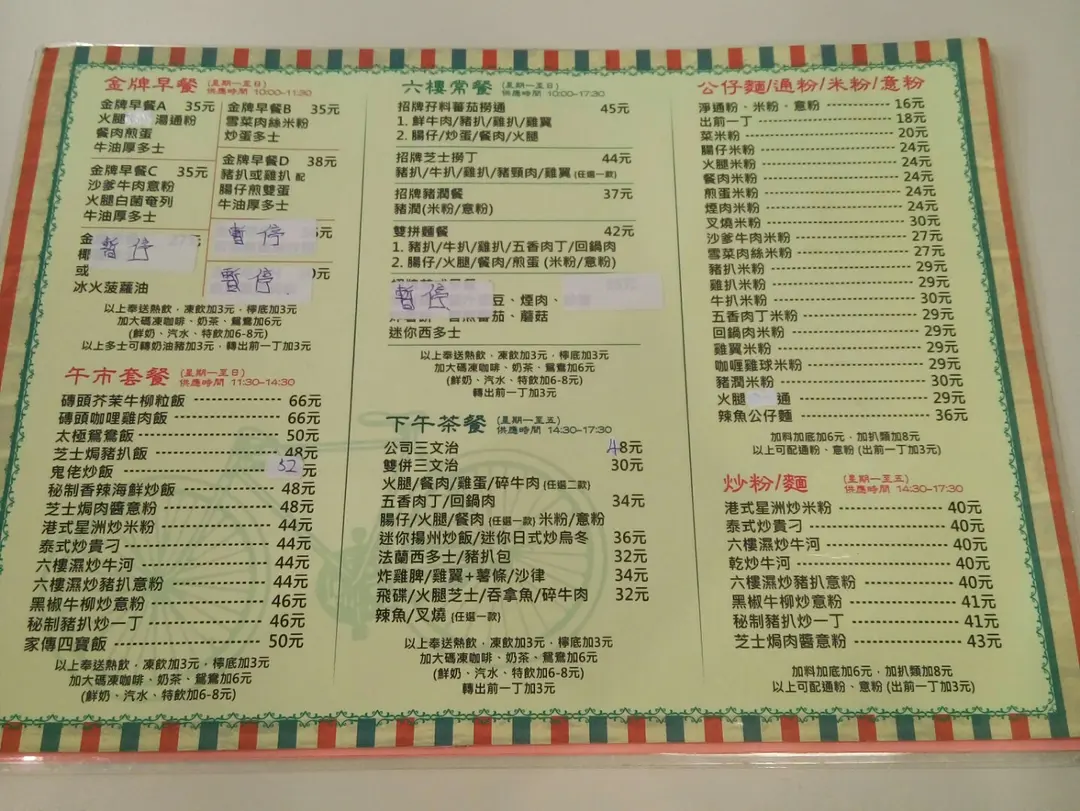 金牌早餐 (星期一至日) 供應時間 10:00-11:30
金牌早餐A 35元
火腿 湯通粉
餐肉煎蛋
牛油厚多士
金牌早餐B 35元
雪菜肉絲米粉
炒蛋多士
金牌早餐C 35元
沙爹牛肉意粉
火腿白菌奄列
牛油厚多士
金牌早餐D 38元
豬扒或雞扒 配
腸仔煎雙蛋
牛油厚多士
金
暫停
椰
或
冰火菠蘿油
暫停 元
暫停 元
以上奉送熱飲﹐凍飲加3元﹐檸底加3元
加大碼凍咖啡、奶茶、鴛鴦加6元
(鮮奶、汽水、特飲加6-8元)
以上多士可轉奶油豬加3元﹐轉出前一丁加3元
午市套餐 (星期一至日) 供應時間 11:30-14:30
磚頭芥茉牛柳粒飯 66元
磚頭咖哩雞肉飯 66元
太極鴛鴦飯 50元
芝士焗豬扒飯 48元
鬼佬炒飯 52元
秘制香辣海鮮炒飯 48元
芝士焗肉醬意粉 48元
港式星洲炒米粉 44元
泰式炒貴刁 44元
六樓濕炒牛河 44元
六樓濕炒豬扒意粉 44元
黑椒牛柳炒意粉 46元
秘制豬扒炒一丁 46元
家傳四寶飯 50元
以上奉送熱飲﹐凍飲加3元﹐檸底加3元
加大碼凍咖啡、奶茶、鴛鴦加6元
(鮮奶、汽水、特飲加6-8元)
六樓常餐 (星期一至日) 供應時間 10:00-17:30
招牌孖料蕃茄撈通 45元
1. 鮮牛肉/豬扒/雞扒/雞翼
2. 腸仔/炒蛋/餐肉/火腿
招牌芝士撈丁 44元
豬扒/牛扒/雞扒/豬頸肉/雞翼 (任選一款)
招牌豬潤餐 37元
豬潤(米粉/意粉)
雙拼麵餐 42元
1. 豬扒/牛扒/雞扒/五香肉丁/回鍋肉
2. 腸仔/火腿/餐肉/煎蛋 (米粉/意粉)
暫停 豆、煙肉、
番茄、蘑菇
迷你西多士
以上奉送熱飲﹐凍飲加3元﹐檸底加3元
加大碼凍咖啡、奶茶、鴛鴦加6元
(鮮奶、汽水、特飲加6-8元)
轉出前一丁加3元
下午茶餐 (星期一至五) 供應時間 14:30-17:30
公司三文治 48元
雙併三文治 30元
火腿/餐肉/雞蛋/碎牛肉 (任選二款)
五香肉丁/回鍋肉 34元
腸仔/火腿/餐肉 (任選一款) 米粉/意粉
迷你揚州炒飯/迷你日式炒烏冬 36元
法蘭西多士/豬扒包 32元
炸雞脾/雞翼+薯條/沙律 34元
飛碟/火腿芝士/吞拿魚/碎牛肉 32元
辣魚/叉燒 (任選一款)
以上奉送熱飲﹐凍飲加3元﹐檸底加3元
加大碼凍咖啡、奶茶、鴛鴦加6元
(鮮奶、汽水、特飲加6-8元)
轉出前一丁加3元
公仔麵/通粉/米粉/意粉
淨通粉、米粉、意粉 16元
出前一丁 18元
菜米粉 20元
腸仔米粉 24元
火腿米粉 24元
餐肉米粉 24元
煎蛋米粉 24元
煙肉米粉 24元
叉燒米粉 30元
沙爹牛肉米粉 27元
雪菜肉絲米粉 27元
豬扒米粉 29元
雞扒米粉 29元
牛扒米粉 30元
五香肉丁米粉 29元
回鍋肉米粉 29元
雞翼米粉 29元
咖喱雞球米粉 29元
豬潤米粉 30元
火腿 通 29元
辣魚公仔麵 36元
加料加底加6元﹐加扒類加8元
以上可配通粉、意粉 (出前一丁加3元)
炒粉/麵 (星期一至五) 供應時間 14:30-17:30
港式星洲炒米粉 40元
泰式炒貴刁 40元
六樓濕炒牛河 40元
乾炒牛河 40元
六樓濕炒豬扒意粉 40元
黑椒牛柳炒意粉 41元
秘制豬扒炒一丁 41元
芝士焗肉醬意粉 43元
加料加底加6元﹐加扒類加8元
以上可配通粉、意粉 (出前一丁加3元)